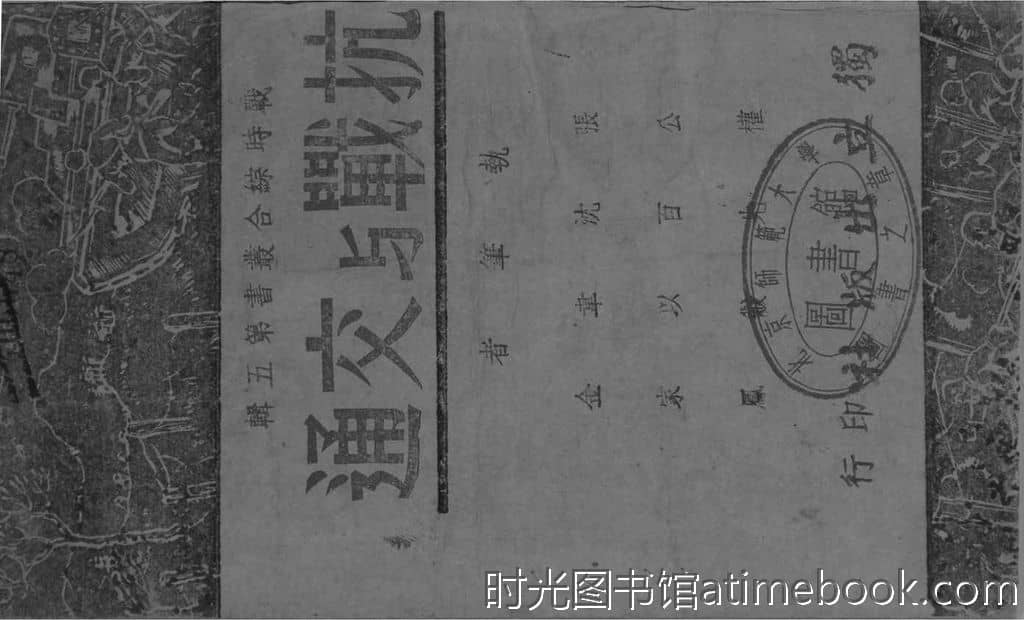 戰時綜合叢書第五輯
抗戰与交通
執筆者
張公權
沈百先
韋以黻
金家鳳
獨立出版社印行
北京師範大學
圖書館
書之章
时光图书馆atimebook.com